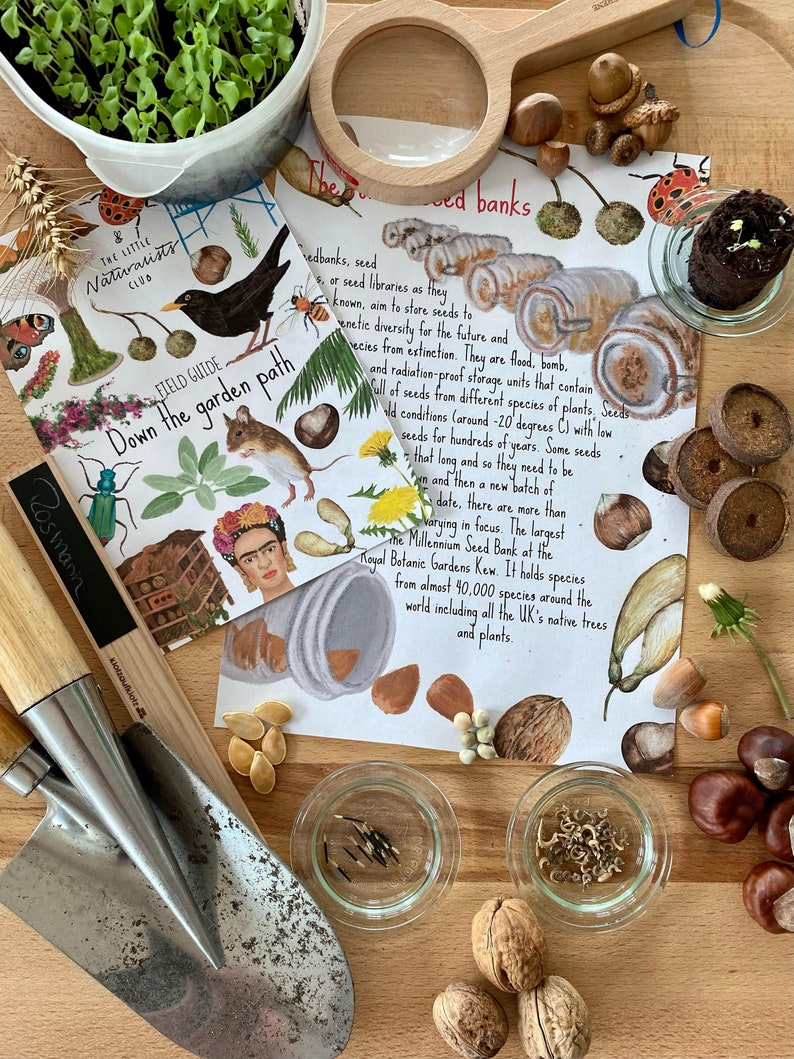 The seed banks
THE LITTLE
Naturalists
CLUB
FIELD GUIDE
Down the garden path
Seedbanks, seed
or seed libraries as they
known, aim to store seeds to
genetic diversity for the future and
species from extinction. They are flood, bomb,
and radiation-proof storage units that contain
full of seeds from different species of plants. Seeds
cold conditions (around -20 degrees C) with low
seeds for hundreds of years. Some seeds
that long and so they need to be
and then a new batch of
date, there are more than
varying in focus. The largest
The Millennium Seed Bank at the
Royal Botanic Gardens Kew. It holds species
from almost 40,000 species around the
world including all the UK's native trees
and plants.
Rosmarin
klotzaufklotz